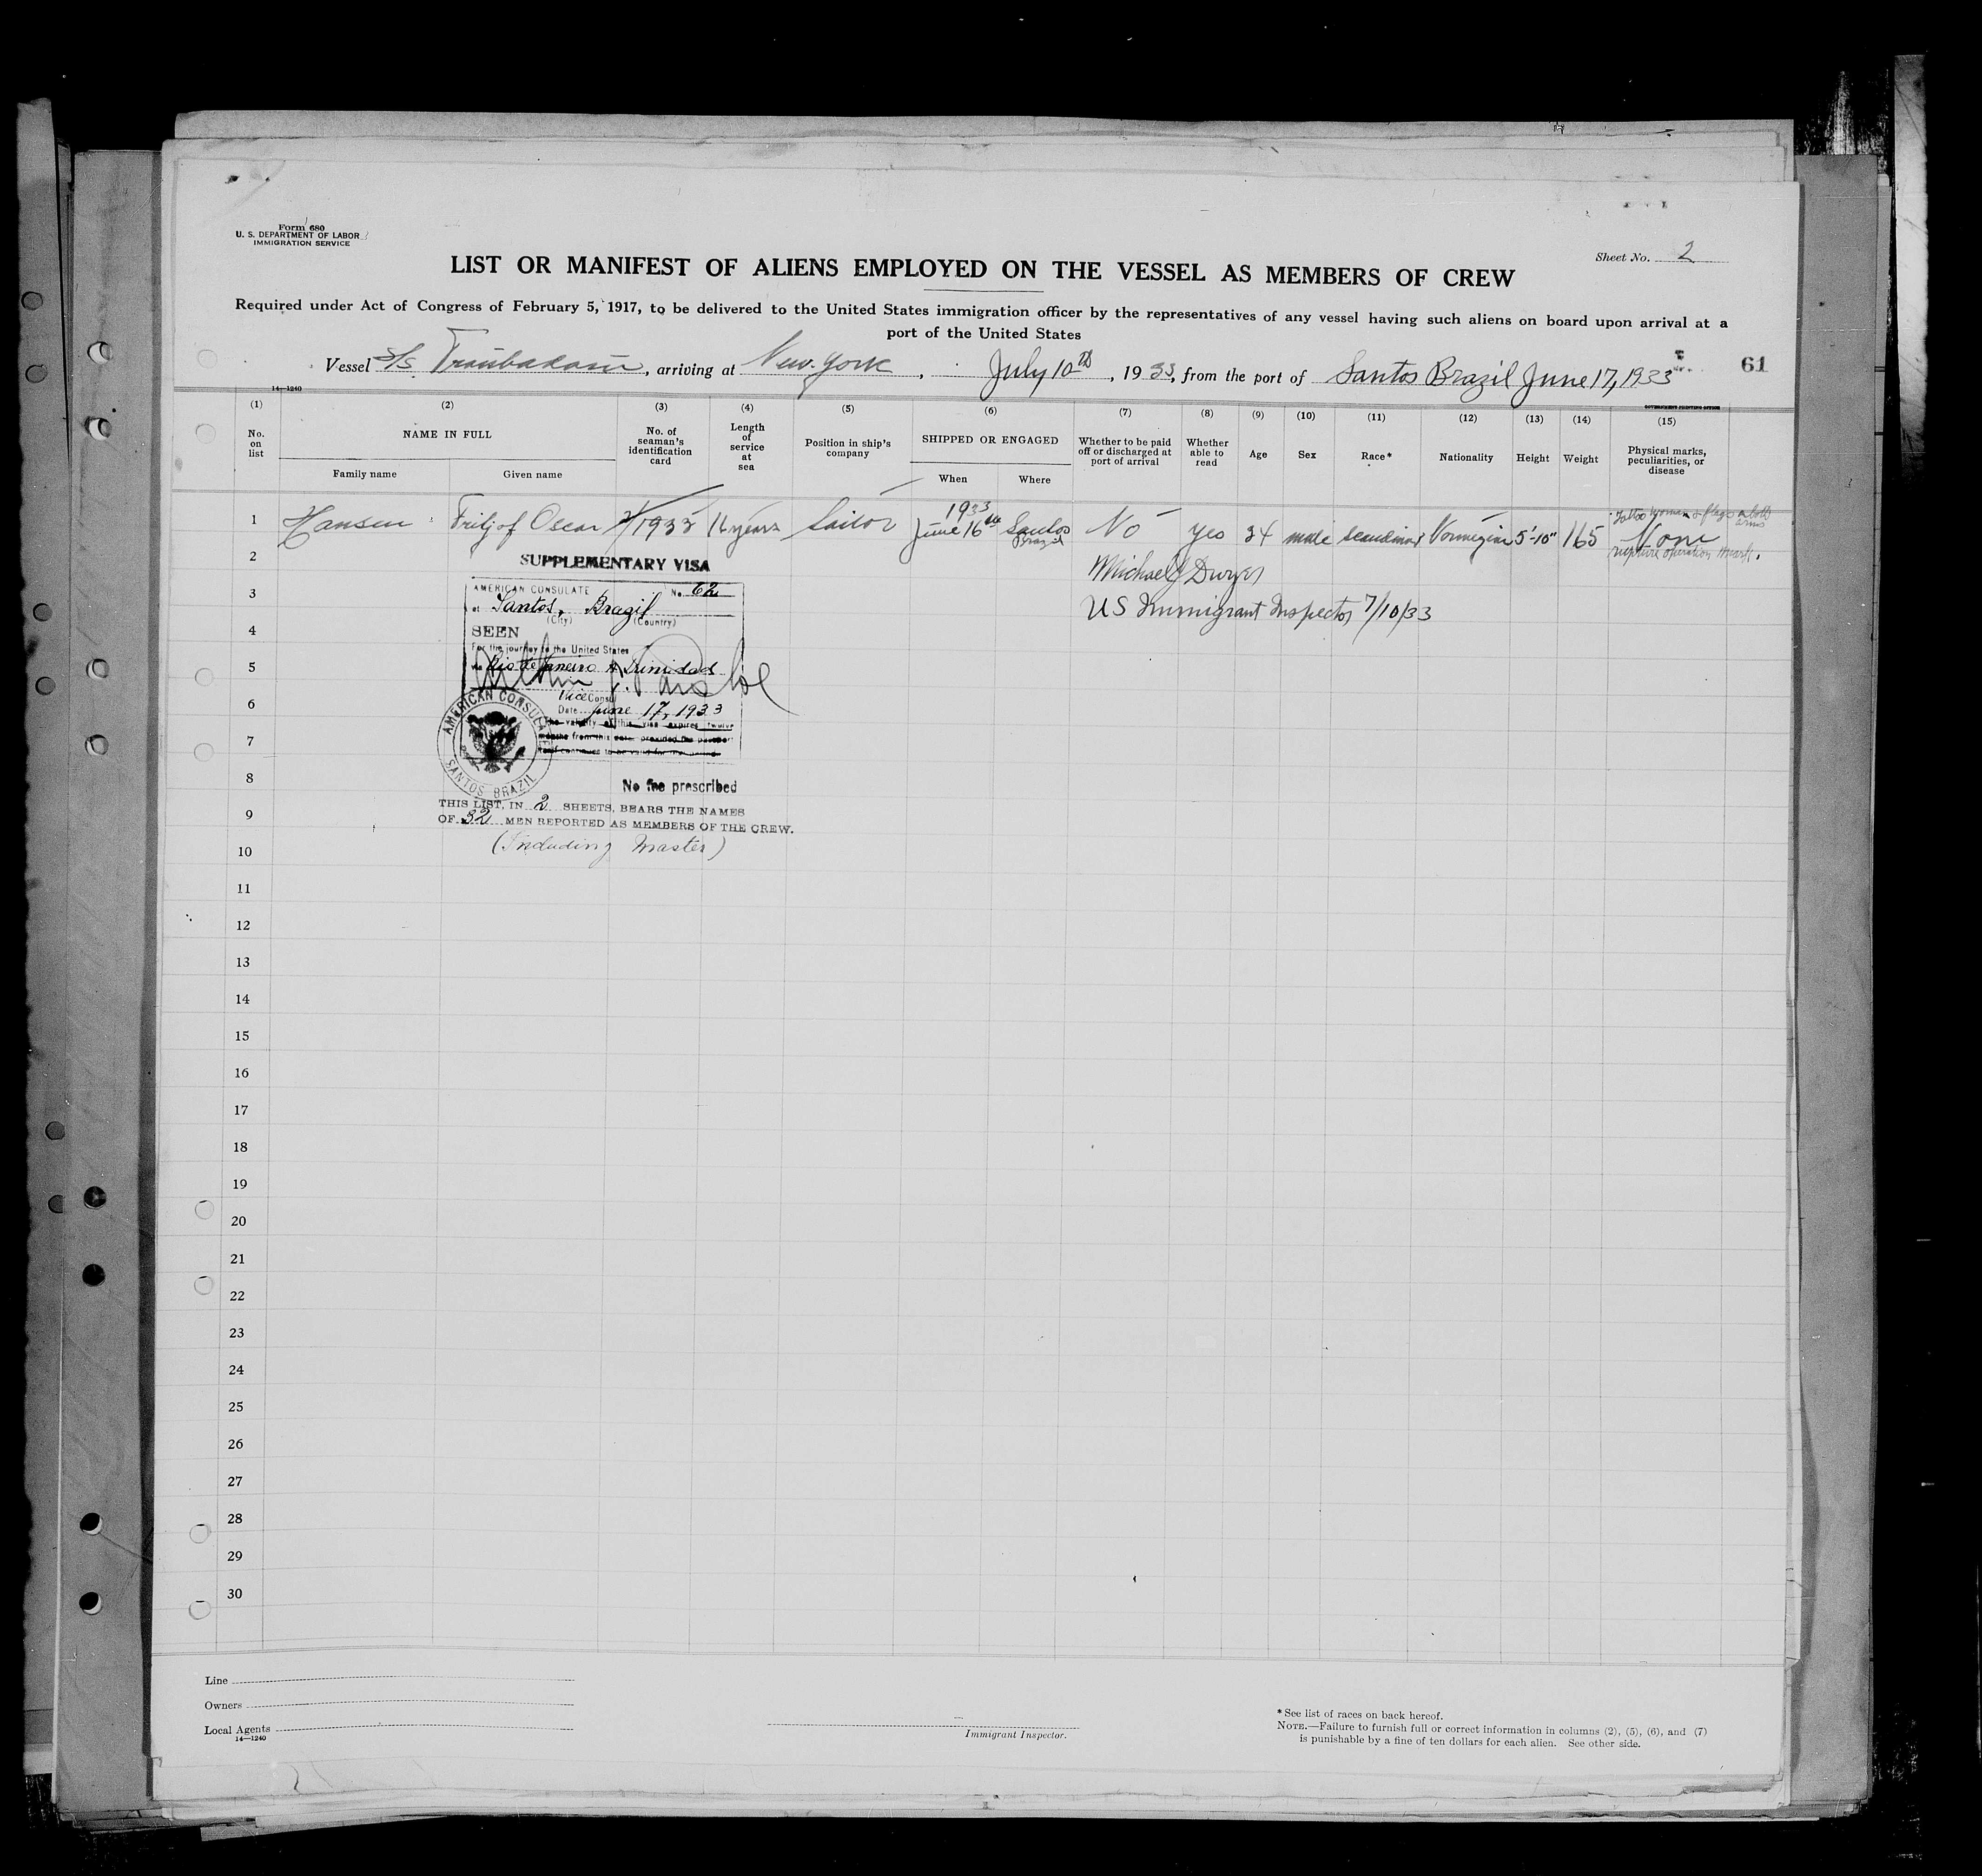 Form 680
U. S. DEPARTMENT OF LABOR
IMMIGRATION SERVICE
Sheet No. 2
LIST OR MANIFEST OF ALIENS EMPLOYED ON THE VESSEL AS MEMBERS OF CREW
Required under Act of Congress of February 5, 1917, to be delivered to the United States immigration officer by the representatives of any vessel having such aliens on board upon arrival at a
port of the United States
Vessel S/s, arriving at New York, July 10th, 1933, from the port of Santos Brazil June 17, 1933
61
14—1240
GOVERNMENT PRINTING OFFICE
(1) (2) (3) (4) (5) (6) (7) (8) (9) (10) (11) (12) (13) (14) (15)
No. on list
NAME IN FULL
Family name
Given name
No. of seaman's identification card
Length of service at sea
Position in ship's company
SHIPPED OR ENGAGED
When
Where
Whether to be paid off or discharged at port of arrival
Whether able to read
Age
Sex
Race*
Nationality
Height
Weight
Physical marks, peculiarities, or disease
1 Hansen Fritjof Oscar 1933 16 years Sailor 1933 June 16th Santos Brazil No yes 34 male scandinav Norwegian 5'-10" 165 Tattoo woman & flags on both arms None rupture operation mark.
2
SUPPLEMENTARY VISA
Michael J Dwyer
3
AMERICAN CONSULATE No. 62
at Santos, Brazil
(City) (Country)
US Immigrant Inspector 7/10/33
4
SEEN
For the journey to the United States
5
via Rio de Janeiro & Trinidad
Vice Consul
6
Date June 17, 1933
The validity of this visa expires twelve
7
months from this date provided the passport
itself continues to be valid for that period
AMERICAN CONSULATE
SANTOS BRAZIL
8
No fee prescribed
THIS LIST, IN 2 SHEETS, BEARS THE NAMES
9
OF 32 MEN REPORTED AS MEMBERS OF THE CREW.
10
(Including Master)
11
12
13
14
15
16
17
18
19
20
21
22
23
24
25
26
27
28
29
30
Line
Owners
Local Agents
14—1240
Immigrant Inspector.
*See list of races on back hereof.
NOTE.—Failure to furnish full or correct information in columns (2), (5), (6), and (7)
is punishable by a fine of ten dollars for each alien. See other side.